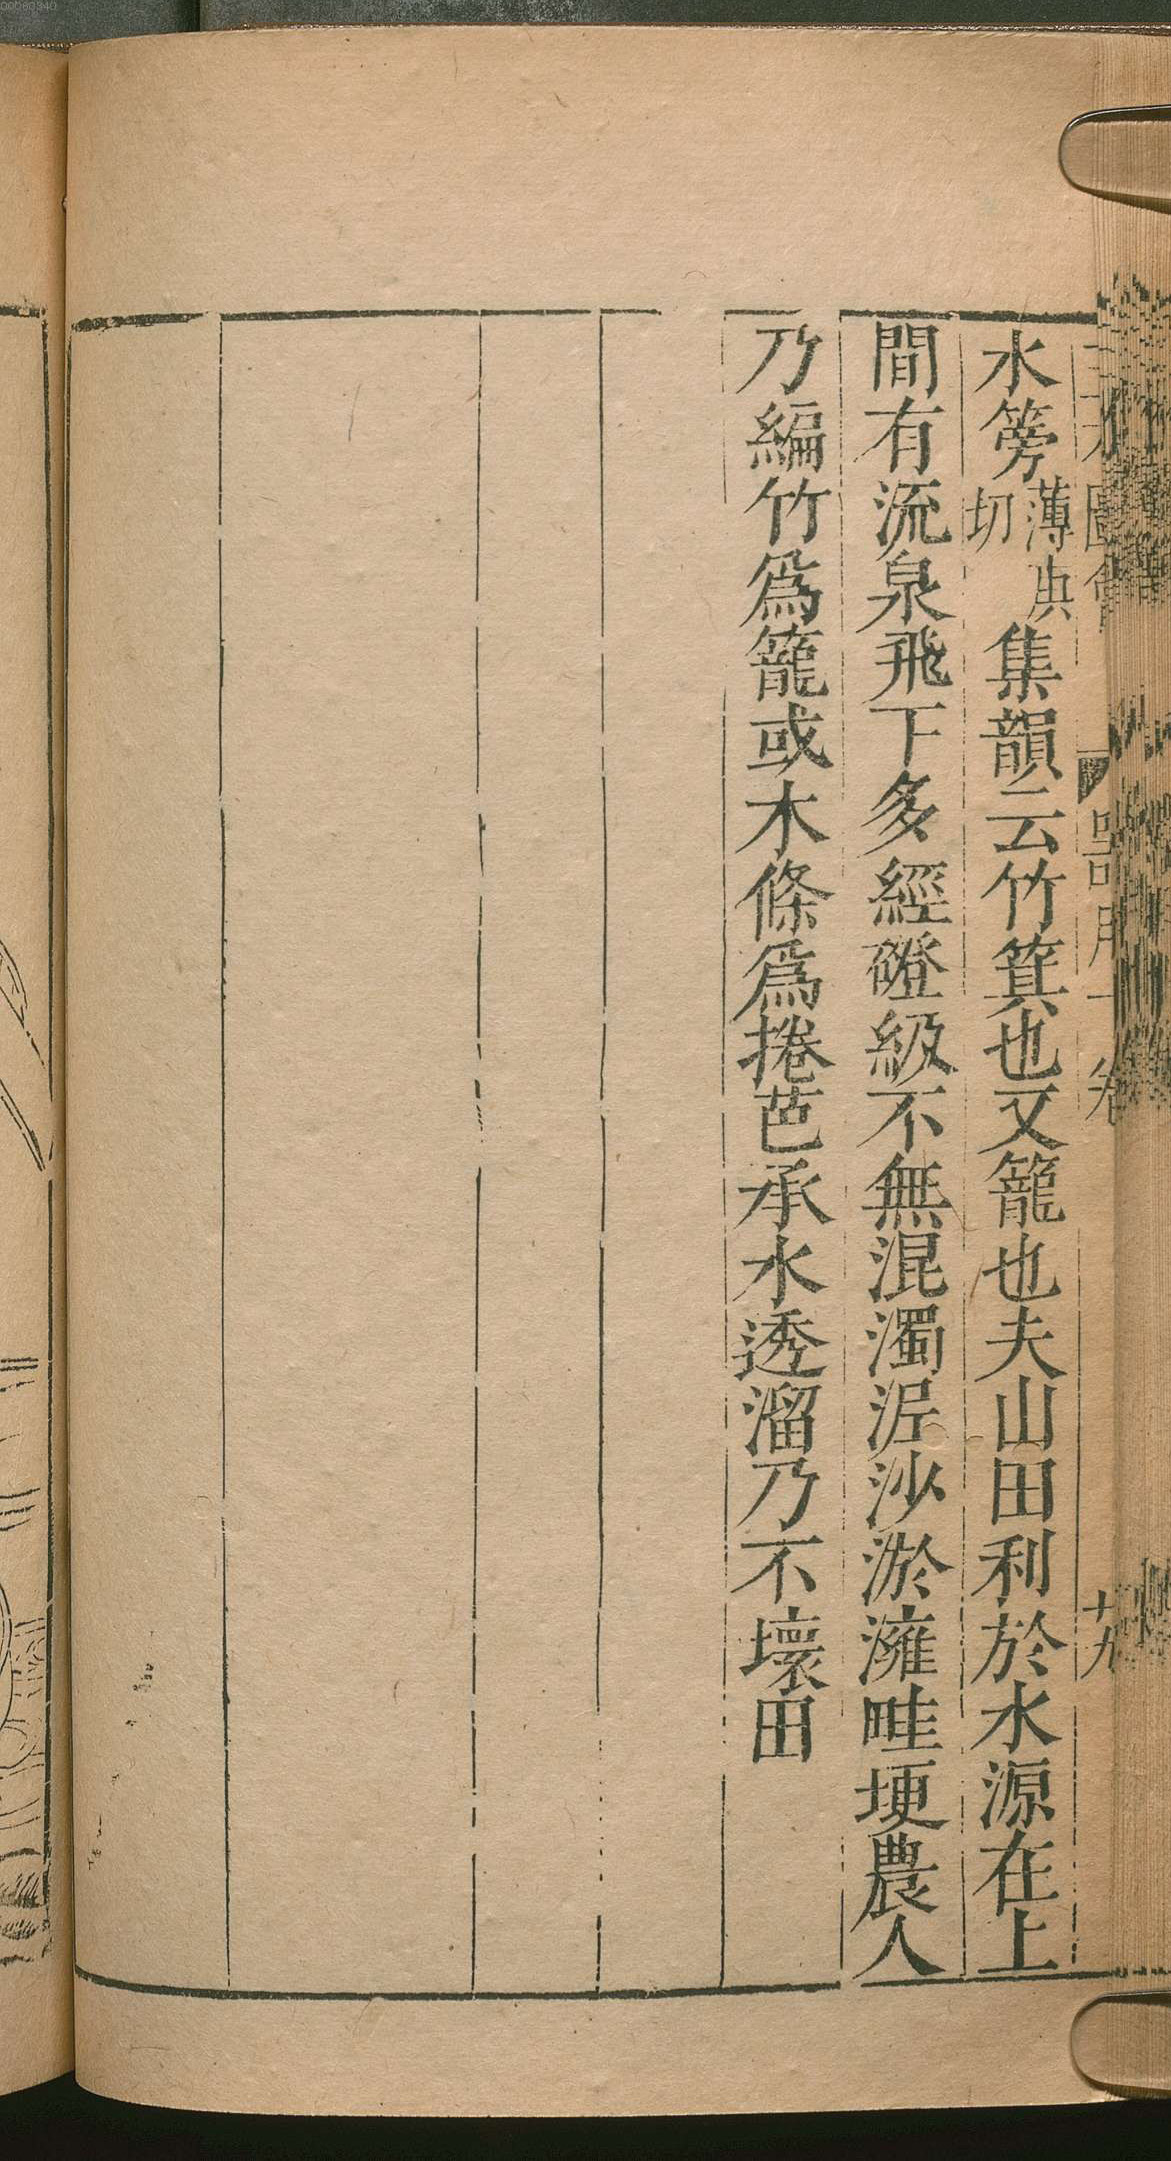 水篣薄典切集韻云竹箕也又籠也夫山田利於水源在上
間有流泉飛下多經磴級不無混濁泥沙淤澭畦埂農人
乃編竹爲籠或木條爲捲芭承水透溜乃不壞田
十九
00080340